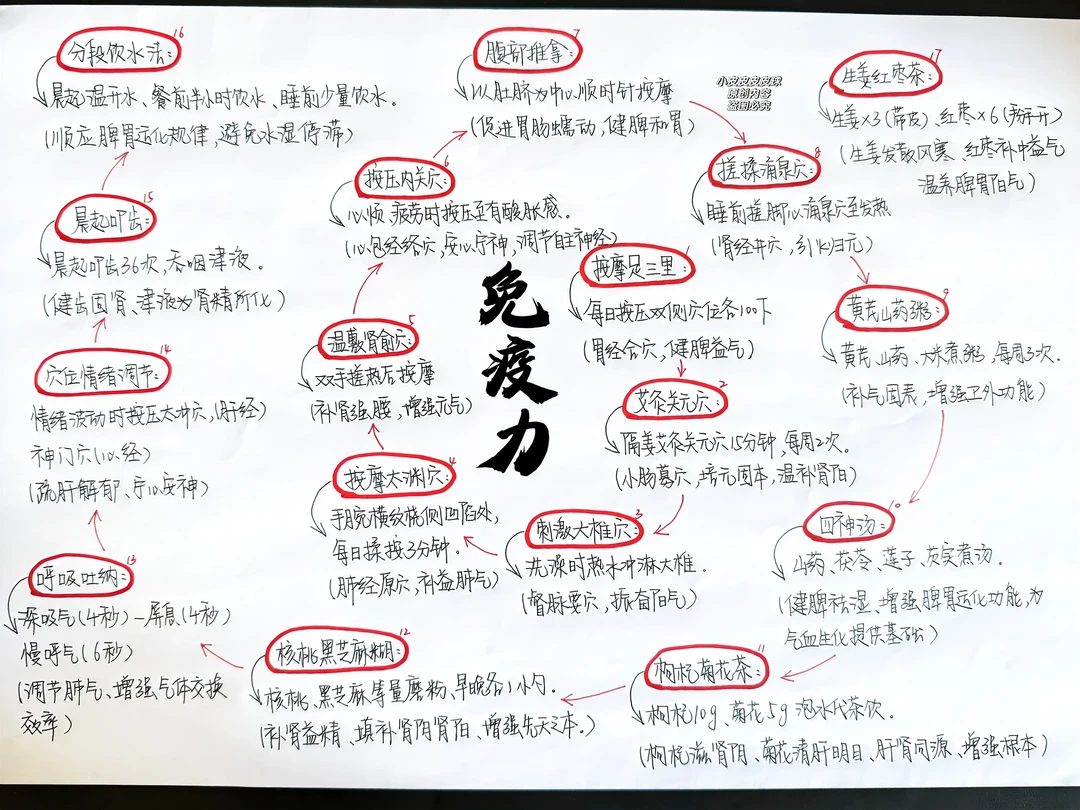 免疫力
按摩足三里: 1
每日按压双侧穴位各100下
(胃经合穴,健脾益气)
艾灸关元穴: 2
隔姜艾灸关元穴15分钟,每周2次.
(小肠募穴,培元固本,温补肾阳)
刺激大椎穴: 3
洗澡时热水冲淋大椎.
(督脉要穴,振奋阳气)
按摩太渊穴: 4
手腕横纹桡侧凹陷处,
每日揉按3分钟.
(肺经原穴,补益肺气)
温敷肾俞穴: 5
双手搓热后按摩
(补肾强腰,增强元气)
按压内关穴: 6
心烦 疲劳时按压至有酸胀感。
(心包经络穴,安心宁神,调节自主神经)
腹部推拿: 7
以肚脐为中心顺时针按摩
(促进胃肠蠕动,健脾和胃)
搓揉涌泉穴: 8
睡前搓脚心涌泉穴至发热
(肾经井穴,引火归元)
黄芪山药粥: 9
黄芪、山药、大米煮粥,每周3次.
(补气固表、增强卫外功能)
四神汤: 10
山药、茯苓、莲子、芡实煮汤.
(健脾祛湿、增强脾胃运化功能,为
气血生化提供基础)
枸杞菊花茶: 11
枸杞10g、菊花5g 泡水代茶饮.
(枸杞滋肾阴、菊花清肝明目、肝肾同源、增强根本)
核桃黑芝麻糊: 12
核桃、黑芝麻等量磨粉,早晚各1小勺.
(补肾益精、填补肾阴肾阳、增强先天之本.)
呼吸吐纳: 13
深吸气(4秒)-屏息(4秒)
慢呼气(6秒)
(调节肺气、增强气体交换
效率)
穴位情绪调节: 14
情绪波动时按压太冲穴,(肝经)
神门穴(心经)
(疏肝解郁、宁心安神)
晨起叩齿: 15
晨起叩齿36次,吞咽津液.
(健齿固肾、津液为肾精所化)
分段饮水法: 16
晨起温开水、餐前半小时饮水、睡前少量饮水.
(顺应脾胃运化规律,避免水湿停滞)
生姜红枣茶: 17
生姜×3(带皮)、红枣×6(掰开)
(生姜发散风寒、红枣补中益气
温养脾胃阳气)
小皮皮皮皮球
原创内容
盗图必究